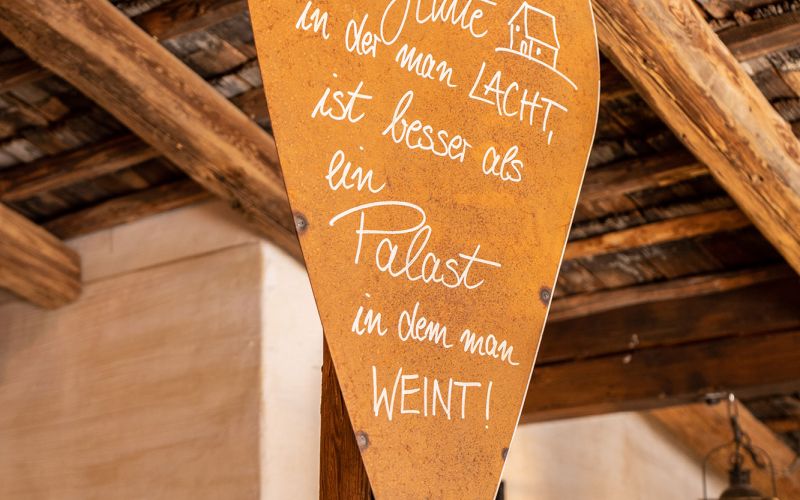 Hütte
in der man LACHT,
ist besser als
ein
Palast
in dem man
WEINT!